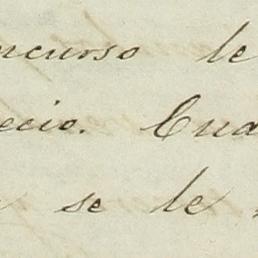 ncurso le
ecio. Cua
se le